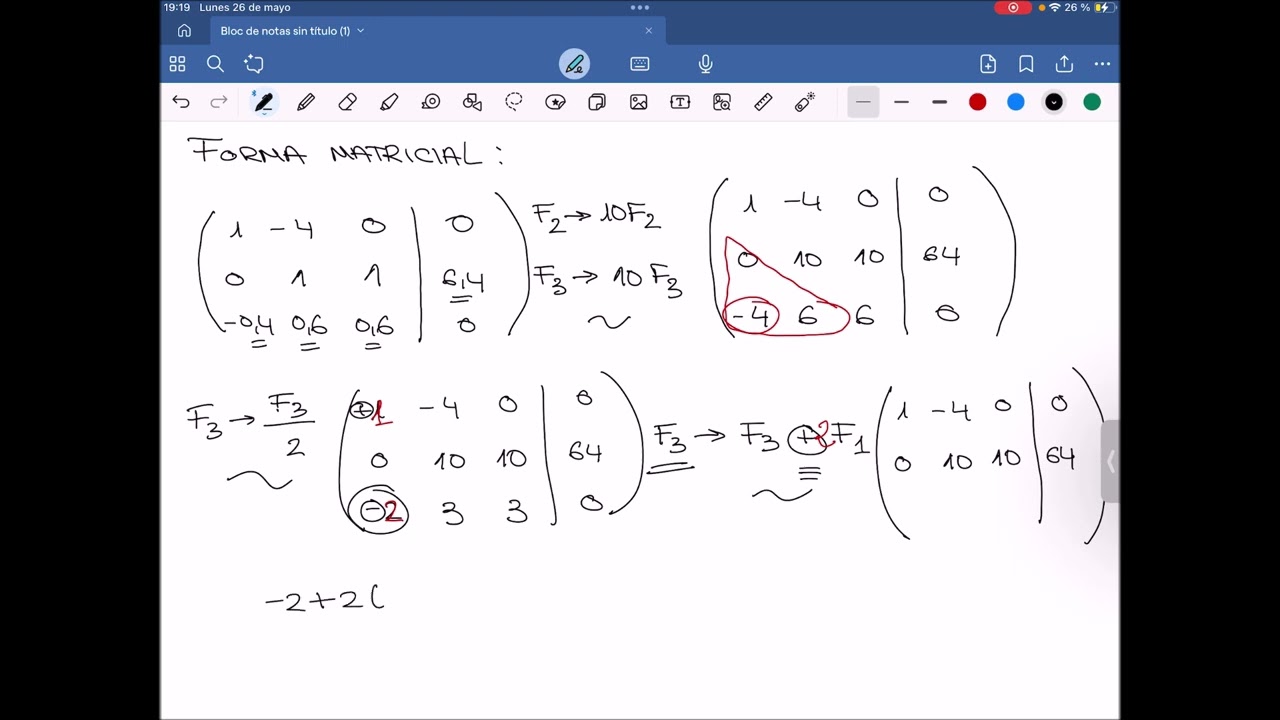 19:19 Lunes 26 de mayo
26 %
Bloc de notas sin título (1)
FORMA MATRICIAL:
1 -4 0 | 0
0 1 1 | 6,4
-0,4 0,6 0,6 | 0
F2 → 10F2
F3 → 10F3
~
1 -4 0 | 0
0 10 10 | 64
-4 6 6 | 0
F3 → F3/2
~
+1 -4 0 | 0
0 10 10 | 64
-2 3 3 | 0
F3 → F3 +2F1
~
1 -4 0 | 0
0 10 10 | 64
-2+2(